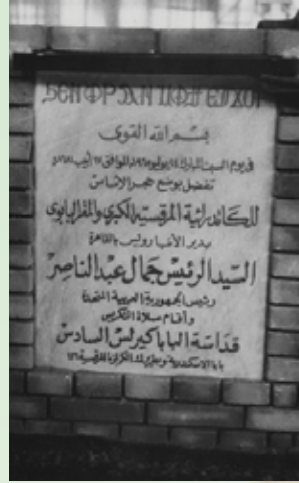 ϦⲈⲚ ⲪⲢⲀⲚ ⲘⲪϮ ⲈⲦϪⲞⲢ
بسم الله القوى
فى يوم السبت المبارك ٢٤ يوليو الموافق أبيب
تفضل بوضع حجر الاساس
للكاتدرائية المرقسية الكبرى والمقر البابوى
بدير الأنبا رويس بالقاهرة
السيد الرئيس جمال عبد الناصر
رئيس الجمهورية العربية المتحدة
وأقام صلاة التكريس
قداسة البابا كيرلس السادس
بابا الاسكندرية وبطريرك الكرازة المرقسية ١١٦